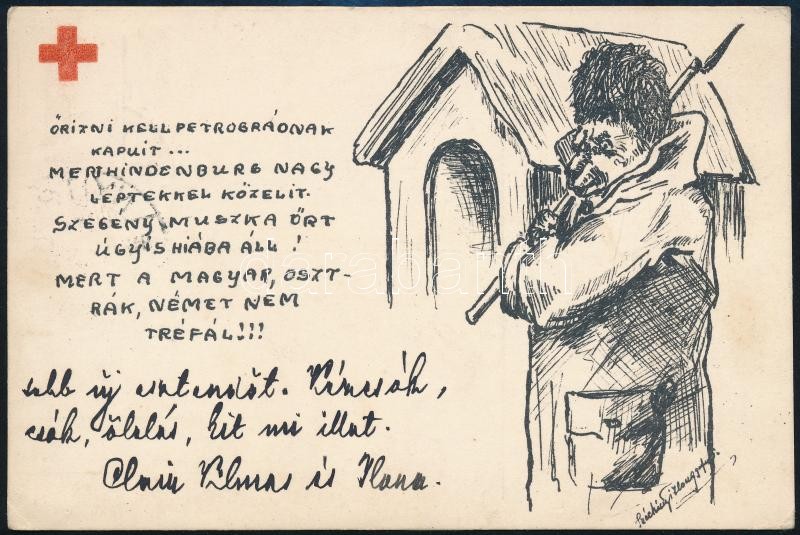 ŐRIZNI KELL PETROGRÁDNAK
KAPUIT...
MERHINDENBURG NAGY
LÉPTEKKEL KÖZELIT.
SZEGÉNY MUSZKA ŐRT
ÚGYIS HIÁBA ÁLL!
MERT A MAGYAR, OSZT-
RÁK, NÉMET NEM
TRÉFÁL!!!
sebb új esztendőt.
csók, ölelés, kit mi illet.
Vilmos és Ilona.
darabanth